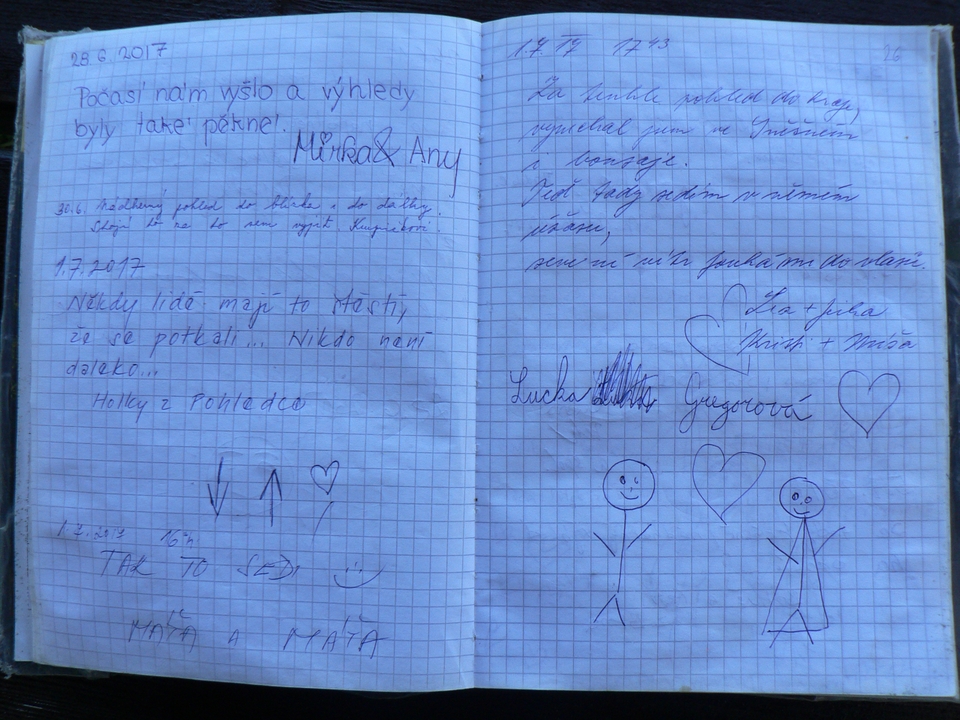 28.6.2017
Počasí nám vyšlo a výhledy
byly také pěkné!
Mirka & Any
30.6. Nádherný pohled do blízka i do dálky.
Stojí to za to sem vyjít.
1.7.2017
Někdy lidé mají to štěstí,
že se potkali... Nikdo není
daleko...
Holky z Pohledce
1.7.2017 16h
TAK TO SEDI
MÁŤA A MÁŤA
1.7. 17 17 43
26
Za tenhle pohled do kraje,
vynechal jsem ve Sněžném
i bonsaje.
Teď tady sedím v němém
úžasu,
severní vítr fouká mi do vlasů.
+ Jirka
Kristi + Míša
Lucka
Gregorová